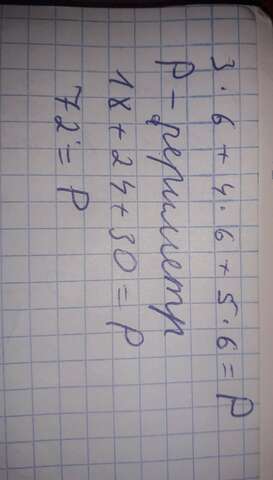 3 · 6 + 4 · 6 + 5 · 6 = P
P - периметр
18 + 24 + 30 = P
72 = P